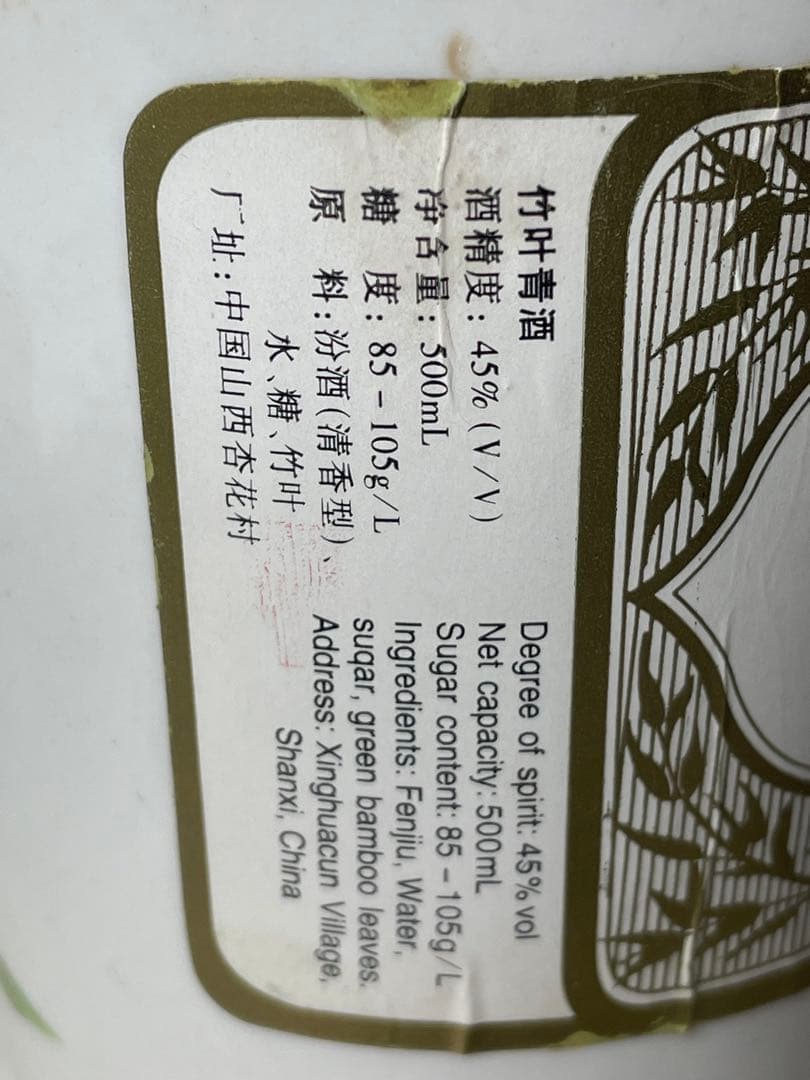 竹叶青酒
酒精度：45%（V/V）
净含量：500mL
糖 度：85－105g/L
原 料：汾酒（清香型）、
水、糖、竹叶
厂址：中国山西杏花村
Degree of spirit: 45%vol
Net capacity: 500mL
Sugar content: 85－105g/L
Ingredients: Fenjiu, Water,
suqar, green bamboo leaves.
Address: Xinghuacun Village,
Shanxi, China